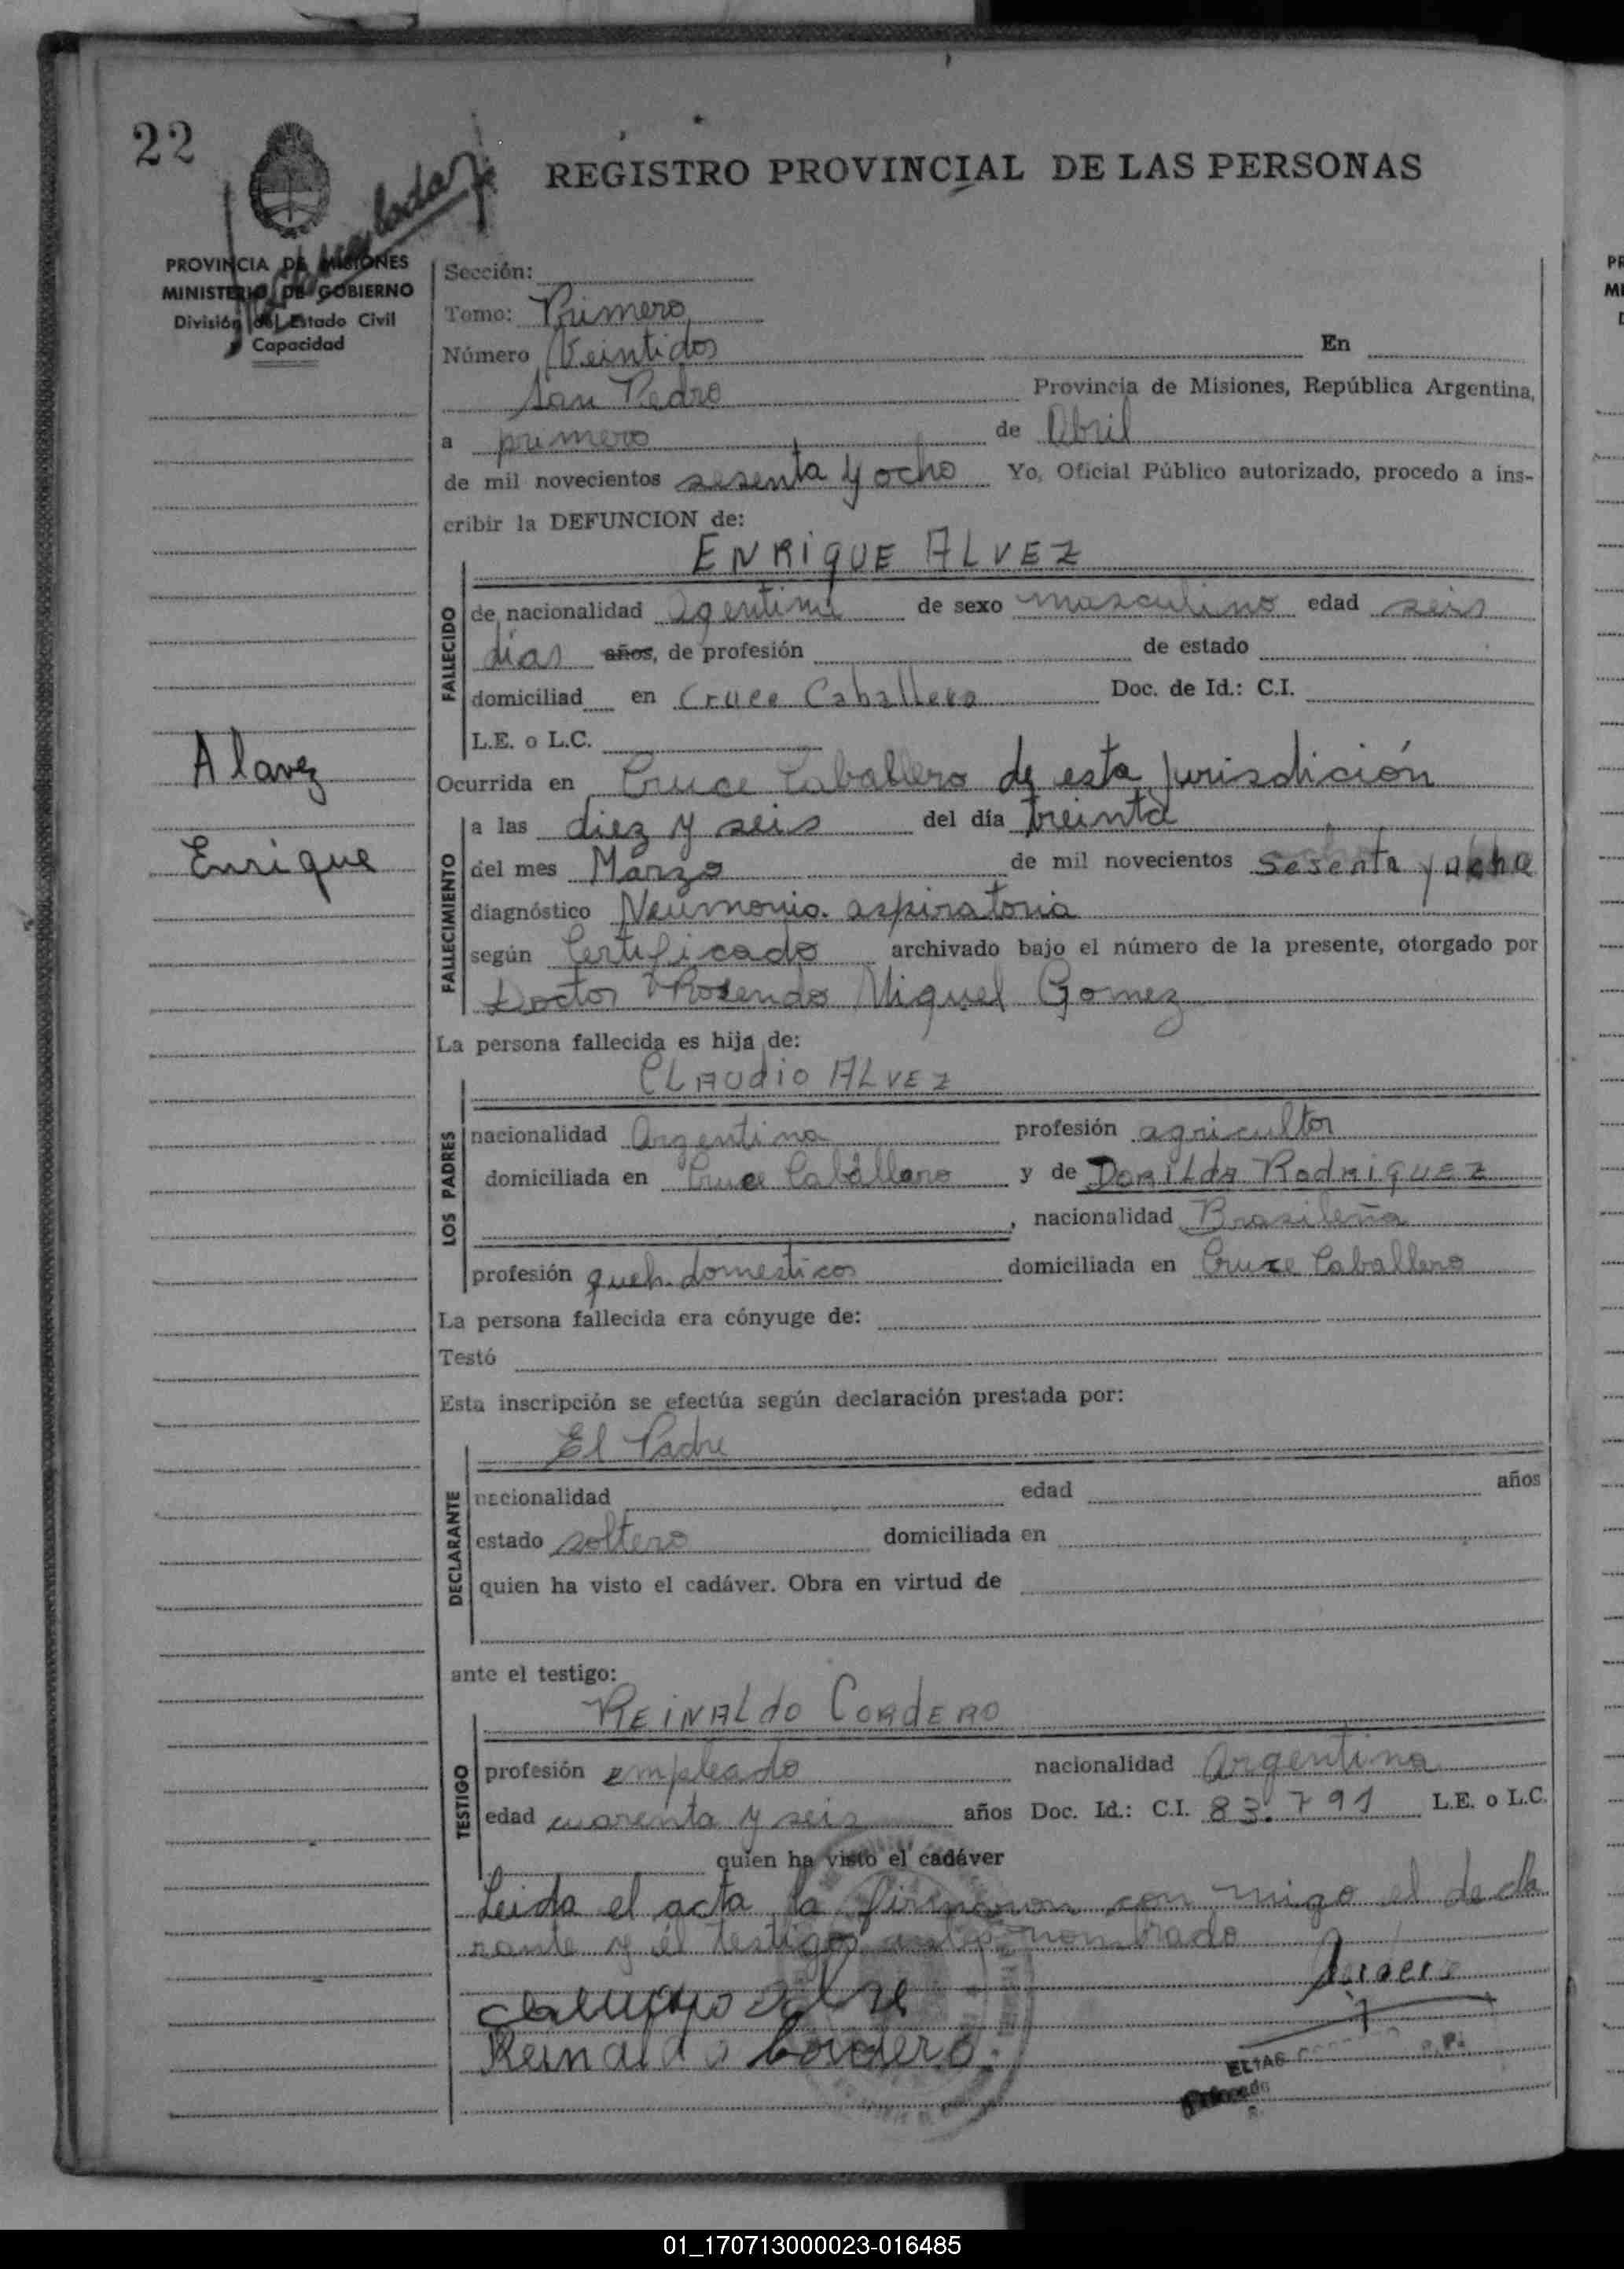 22
REGISTRO PROVINCIAL DE LAS PERSONAS
PROVINCIA DE MISIONES
MINISTERIO DE GOBIERNO
División del Estado Civil
Capacidad
Sección:
Tomo: Primero
Número Veintidos En
San Pedro Provincia de Misiones, República Argentina,
a primero de Abril
de mil novecientos sesenta y ocho Yo, Oficial Público autorizado, procedo a ins-
cribir la DEFUNCION de:
ENRIQUE ALVEZ
FALLECIDO
de nacionalidad Agentina de sexo masculino edad seis
dias años, de profesión de estado
domiciliad en Cruce Caballero Doc. de Id.: C.I.
L.E. o L.C.
Alavez
Enrique
Ocurrida en Cruce Caballero de esta jurisdición
FALLECIMIENTO
a las diez y seis del día treinta
del mes Marzo de mil novecientos sesenta y ocho
diagnóstico Neumonia aspiratoria
según Certificado archivado bajo el número de la presente, otorgado por
Doctor Rosendo Miguel Gomez
La persona fallecida es hija de:
CLAUdiO ALVEZ
LOS PADRES
nacionalidad Argentina profesión agricultor
domiciliada en Cruce Caballero y de DORILda RodRIGUEZ
, nacionalidad Brasileña
profesión queh. domesticos domiciliada en Cruce Caballero
La persona fallecida era cónyuge de:
Testó
Esta inscripción se efectúa según declaración prestada por:
El Padre
DECLARANTE
nacionalidad edad años
estado soltero domiciliada en
quien ha visto el cadáver. Obra en virtud de
ante el testigo:
REINALdO CORdERO
TESTIGO
profesión empleado nacionalidad Argentina
edad cuarenta y seis años Doc. Id.: C.I. 83.791 L.E. o L.C.
quien ha visto el cadáver
Leida el acta la firmaron con migo el decla
rante y el testigo antes nombrado
Reinaldo Cordero
ELIAS
01_170713000023-016485